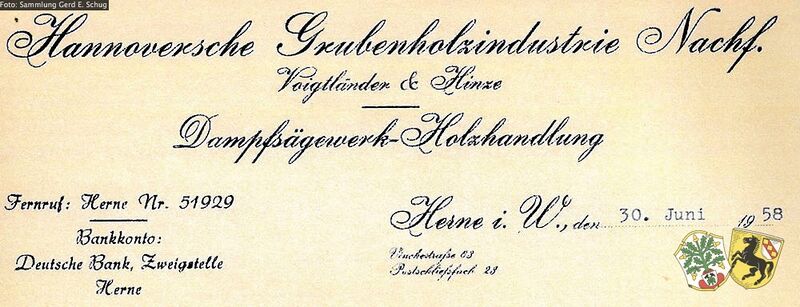 Foto: Sammlung Gerd E. Schug
Hannoversche Grubenholzindustrie Nachf.
Voigtländer & Hinze
Dampfsägewerk-Holzhandlung
Fernruf: Herne Nr. 51929
Bankkonto:
Deutsche Bank, Zweigstelle
Herne
Herne i. W., den 30. Juni 1958
Vinckestraße 63
Postschließfach 23